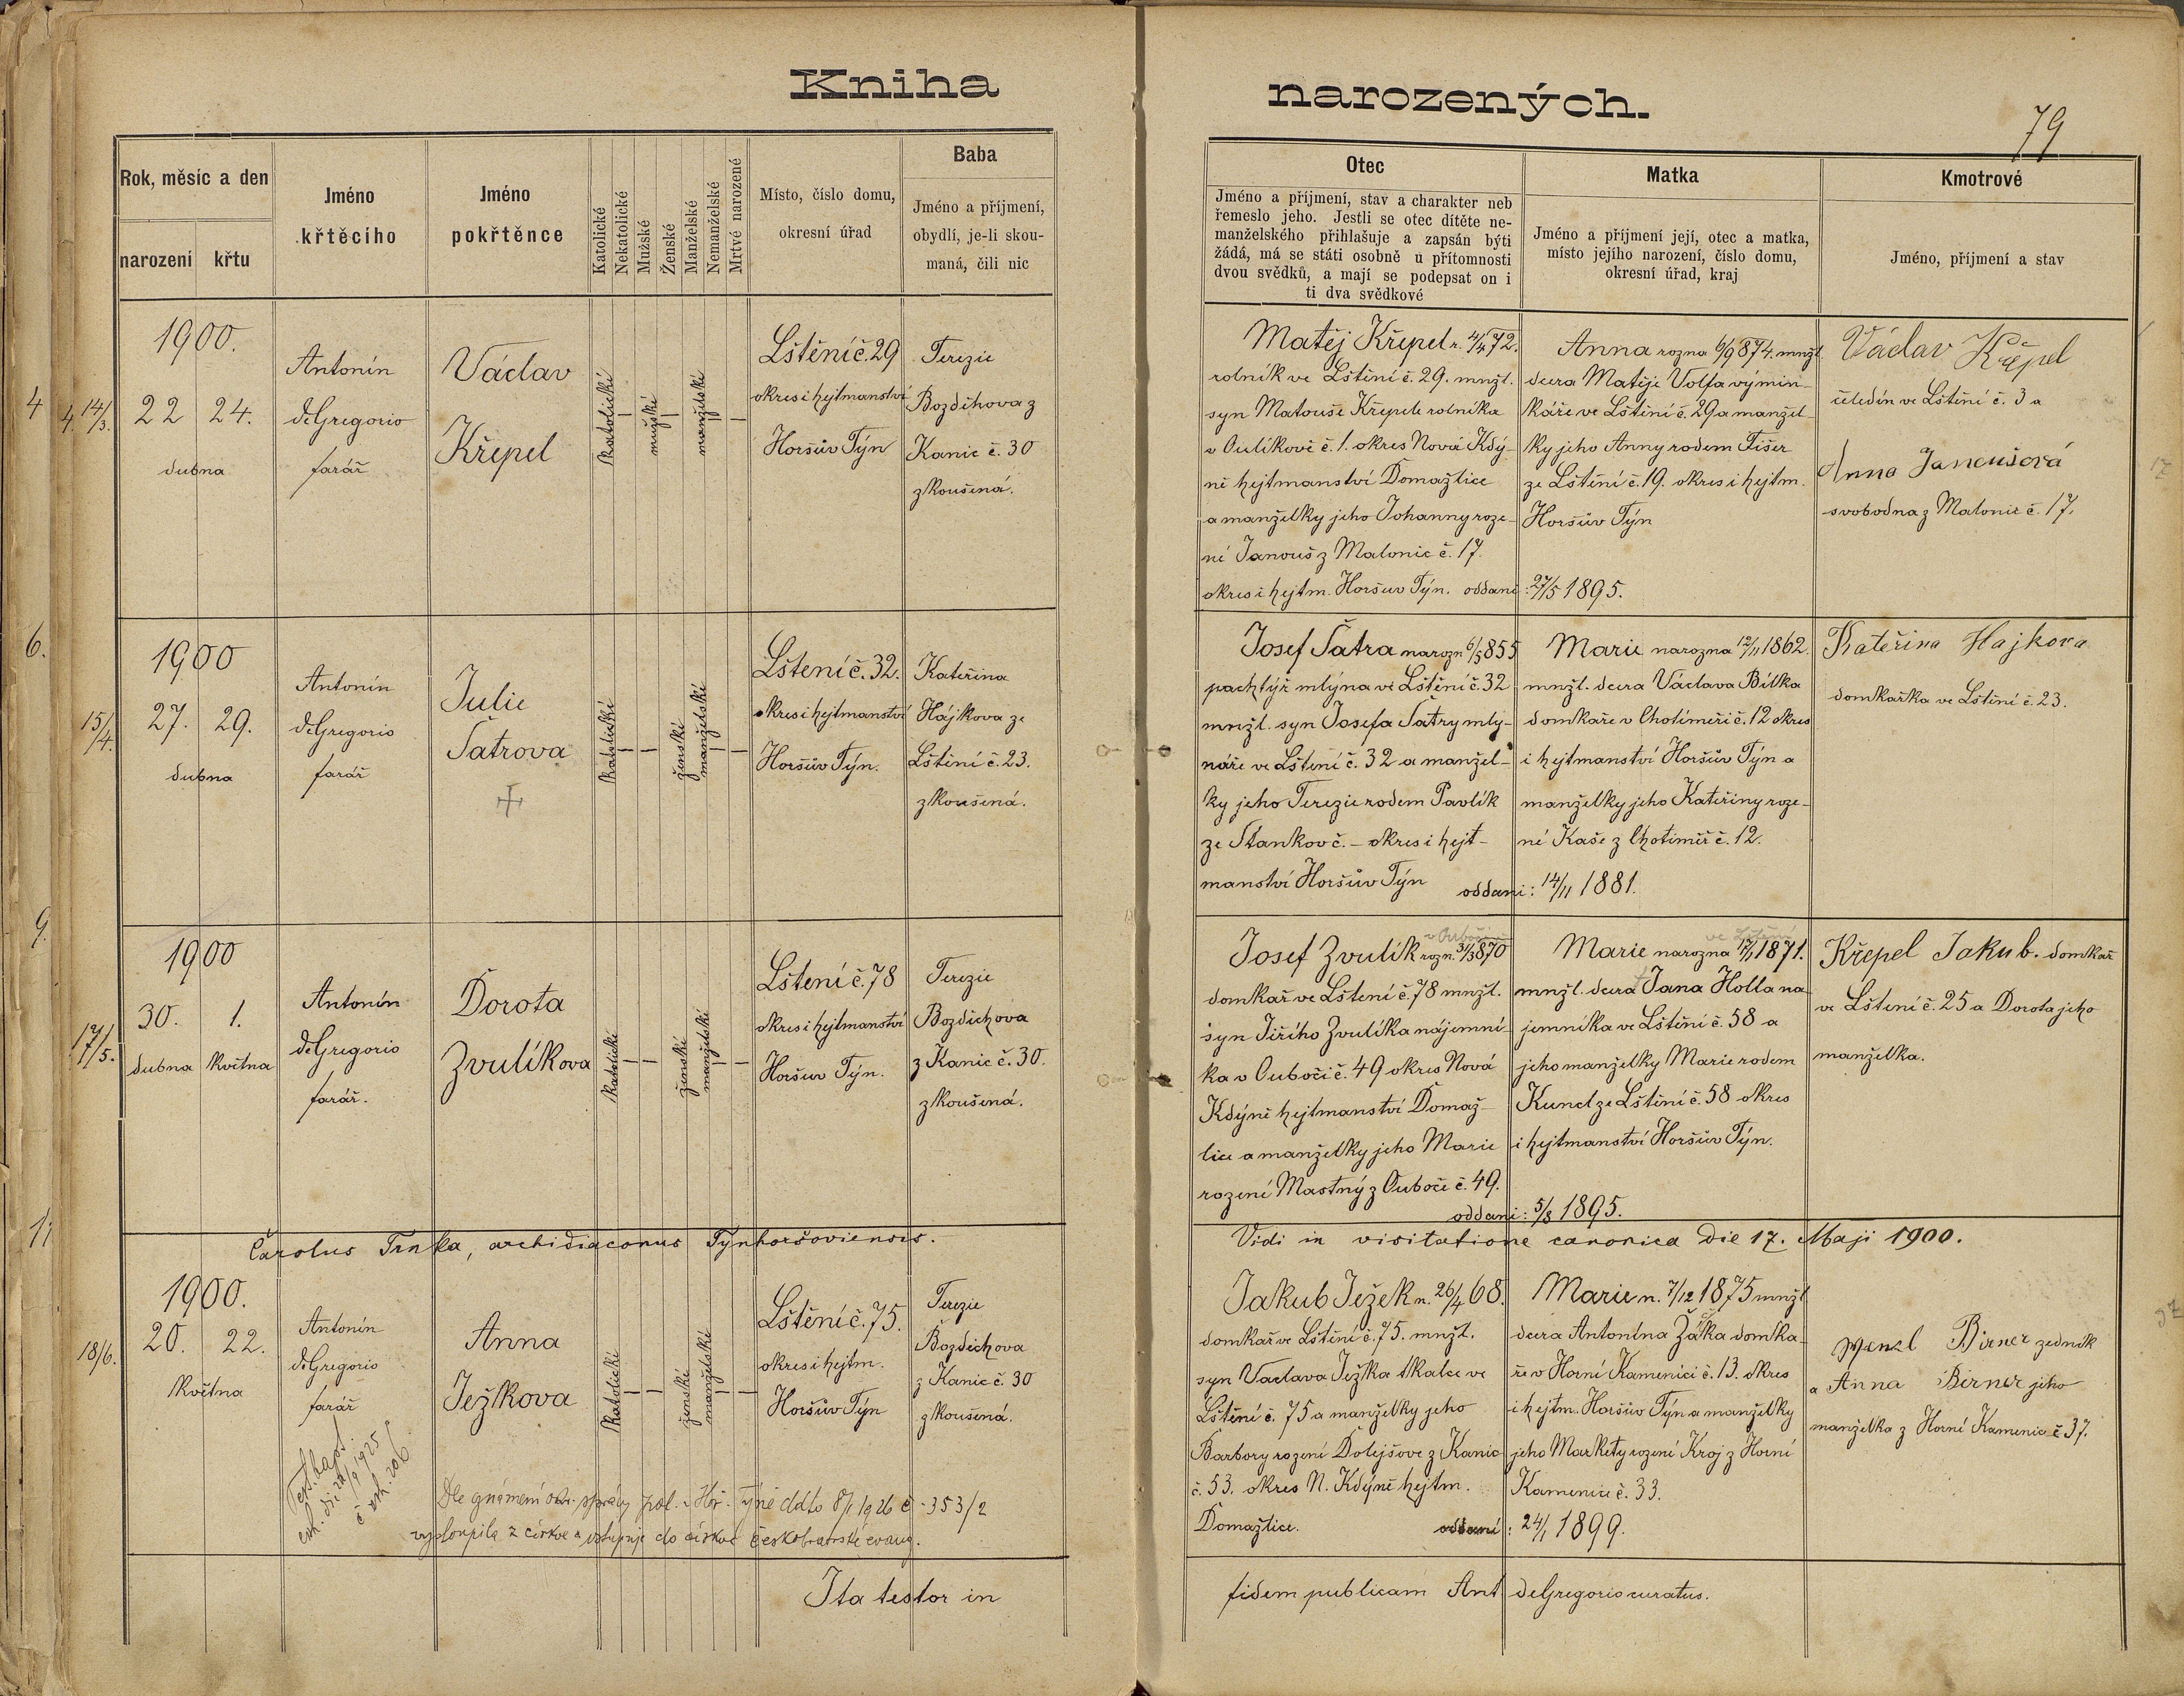 Kniha
narozených.
79
Rok, měsíc a den
narození
křtu
Jméno
křtěcího
Jméno
pokřtěnce
Katolické
Nekatolické
Mužské
Ženské
Manželské
Nemanželské
Mrtvé narozené
Místo, číslo domu,
okresní úřad
Baba
Jméno a příjmení,
obydlí, je-li skou-
maná, čili nic
Otec
Jméno a příjmení, stav a charakter neb
řemeslo jeho. Jestli se otec dítěte ne-
manželského přihlašuje a zapsán býti
žádá, má se státi osobně u přítomnosti
dvou svědků, a mají se podepsat on i
ti dva svědkové
Matka
Jméno a příjmení její, otec a matka,
místo jejího narození, číslo domu,
okresní úřad, kraj
Kmotrové
Jméno, příjmení a stav
4
4. 14/3.
1900.
22 24.
dubna
Antonín
deGregorio
farář
Václav
Křepel
katolické
mužské
manželské
Lštění č. 29
okres i hejtmanství
Horšův Týn
Terezie
Bozděchova z
Kanic č. 30
zkoušená.
Matěj Křepel n. 4/4 72.
rolník ve Lštění č. 29. mnžl.
syn Matouše Křepele rolníka
v Oulíkově č. 1. okres Nová Kdý-
ně hejtmanství Domažlice
a manželky jeho Johanny roze-
né Janouš z Malonic č. 17.
okres i hejtm. Horšův Týn. oddani: 27/5 1895.
Anna rozna 6/9 874. mnžl
dcera Matěje Volfa výmin-
káře ve Lštění č. 29 a manžel-
ky jeho Anny rodem Fišer
ze Lštění č. 19. okres i hejtm.
Horšův Týn
Václav Křepel
čeledín ve Lštění č. 3 a
Anna Janoušová
svobodna z Malonic č. 17.
6.
15/4.
1900
27. 29.
dubna
Antonín
deGregorio
farář
Julie
Šatrova
katolické
ženské
manželské
Lštení č. 32.
okres i hejtmanství
Horšův Týn.
Kateřina
Hájkova ze
Lštění č. 23.
zkoušená.
Josef Šatra narozn 6/3 855
pachtýř mlýna ve Lštění č. 32
mnžl. syn Josefa Šatry mly-
náře ve Lštění č. 32 a manžel-
ky jeho Terezie rodem Pavlík
ze Stankov č. – okres i hejt-
manství Horšův Týn oddani: 14/11 1881.
Marie narozna 12/11 1862.
mnžl. dcera Václava Bílka
domkaře v Chotiměři č. 12 okres
i hejtmanství Horšův Týn a
manželky jeho Kateřiny roze-
né Kaše z Chotiměř č. 12.
Kateřina Hajkova
domkařka ve Lštění č. 23.
9.
17/5.
1900
30. 1.
dubna května
Antonín
deGregorio
farář.
Dorota
Zvulíkova
katolické
ženské
manželské
Lštení č. 78
okres i hejtmanství
Horšuv Týn.
Terezie
Bozdichova
z Kanic č. 30.
zkoušená.
Josef Zvulík rozn. 31/3 870
domkař ve Lštení č. 78 mnžl.
syn Jiřího Zvulíka nájemní-
ka v Oubočí č. 49 okres Nová
Kdýně hejtmanství Domaž-
lice a manželky jeho Marie
rození Mastný z Ouboče č. 49.
oddani: 5/8 1895.
ve Lštění
Marie narozna 17/1 1871.
mnžl. dcera Jana Holla na-
jemníka ve Lštění č. 58 a
jeho manželky Marie rodem
Kuncl ze Lštění č. 58 okres
i hejtmanství Horšův Týn.
Křepel Jakub. domkař
ve Lštení č. 25 a Dorota jeho
manželka.
Carolus Trnka, archidiaconus Týnhoršoviensis.
Vidi in visitatione canonica die 17. Maji 1900.
11
18/6.
1900.
20. 22.
května
Antonín
deGregorio
farář
Anna
Ježkova
katolické
ženské
manželské
Lštění č. 75.
okres i hejtm.
Horšův Týn
Terezie
Bozdichova
z Kanic č. 30
zkoušená.
Jakub Ježek n. 26/4 68.
domkař ve Lštění č. 75. mnžl.
syn Vaclava Ježka tkalce ve
Lštění č. 75 a manželky jeho
Barbory rození Dolejšove z Kanic
č. 53. okres N. Kdýně hejtm.
Domažlice. oddaní: 24/1 1899.
Marie n. 7/12 1875 mnžl
dcera Antonína Žáka domka-
ře v Horní Kamenici č. 13. okres
i hejtm. Horšův Týn a manželky
jeho Markéty rození Kroj z Horní
Kamenice č. 33.
Wenzl Birner zedník
a Anna Birner jeho
manželka z Horní Kamenic č 37.
Test. bapt.
exh. 206
vystoupila z církve a vstupuje do církve českobratrské evang.
Ita testor in
fidem publicam Ant deGregorio curatus.